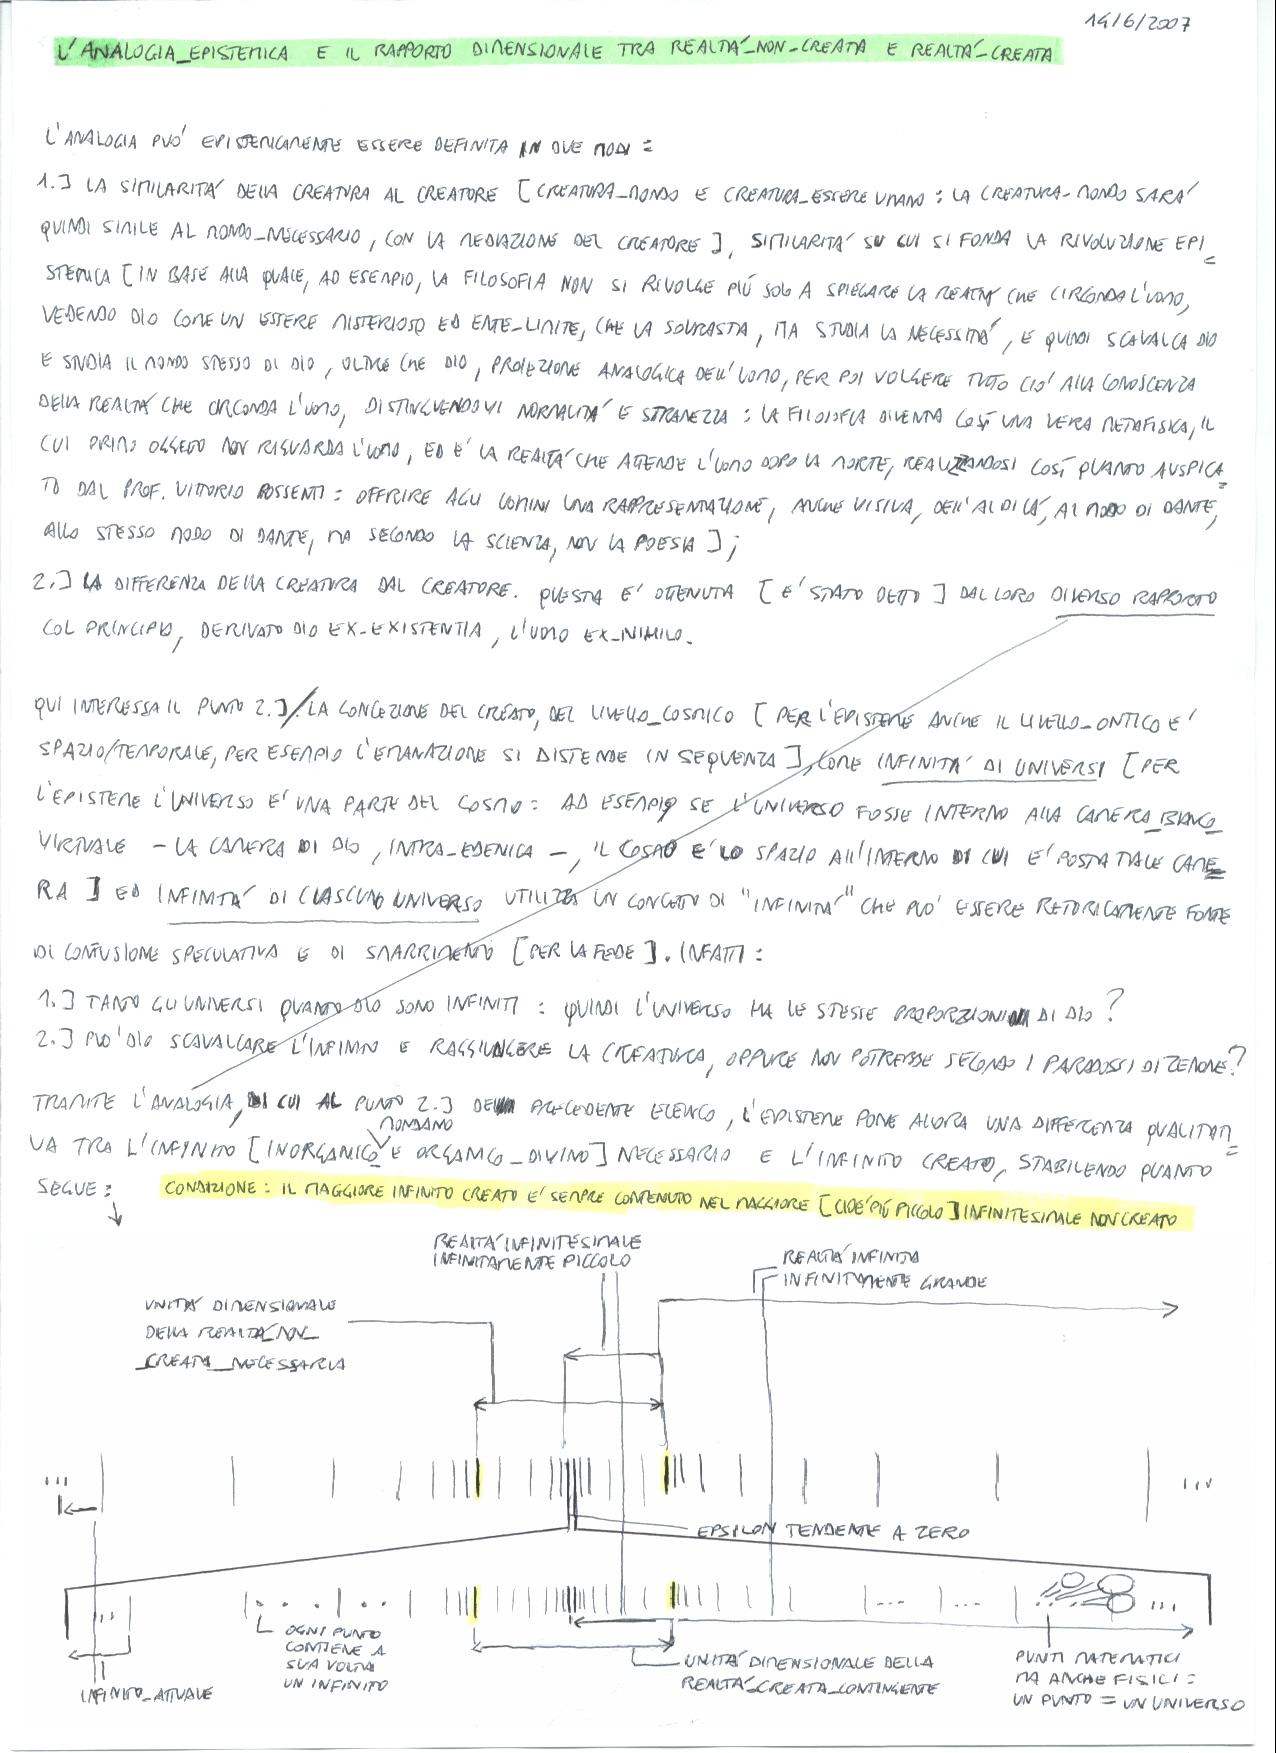 14/6/2007
L'ANALOGIA_EPISTEMICA E IL RAPPORTO DIMENSIONALE TRA REALTÀ_NON_CREATA E REALTÀ_CREATA
L'ANALOGIA PUÒ EPISTEMICAMENTE ESSERE DEFINITA IN DUE MODI =
1.] LA SIMILARITÀ DELLA CREATURA AL CREATORE [ CREATURA_MONDO E CREATURA_ESSERE UMANO : LA CREATURA_MONDO SARÀ
QUINDI SIMILE AL MONDO_NECESSARIO, CON LA MEDIAZIONE DEL CREATORE ], SIMILARITÀ SU CUI SI FONDA LA RIVOLUZIONE EPI=
STEMICA [ IN BASE ALLA QUALE, AD ESEMPIO, LA FILOSOFIA NON SI RIVOLGE PIÚ SOLO A SPIEGARE LA REALTÀ CHE CIRCONDA L'UOMO,
VEDENDO DIO COME UN ESSERE MISTERIOSO ED ENTE_LIMITE, CHE LA SOVRASTA, MA STUDIA LA NECESSITÀ, E QUINDI SCAVALCA DIO
E STUDIA IL MONDO STESSO DI DIO, OLTRE CHE DIO, PROIEZIONE ANALOGICA DELL'UOMO, PER POI VOLGERE TUTTO CIÒ ALLA CONOSCENZA
DELLA REALTÀ CHE CIRCONDA L'UOMO, DISTINGUENDOVI NORMALITÀ E STRANEZZA : LA FILOSOFIA DIVENTA COSÍ UNA VERA METAFISICA, IL
CUI PRIMO OGGETTO NON RIGUARDA L'UOMO, ED È LA REALTÀ CHE ATTENDE L'UOMO DOPO LA MORTE, REALIZZANDOSI COSÍ QUANTO AUSPICA=
TO DAL PROF. VITTORIO POSSENTI : OFFRIRE AGLI UOMINI UNA RAPPRESENTAZIONE, ANCHE VISIVA, DELL'AL DI LÀ, AL MODO DI DANTE,
ALLO STESSO MODO DI DANTE, MA SECONDO LA SCIENZA, NON LA POESIA ] ;
2.] LA DIFFERENZA DELLA CREATURA DAL CREATORE. QUESTA È OTTENUTA [ È STATO DETTO ] DAL LORO DIVERSO RAPPORTO
COL PRINCIPIO, DERIVATO DIO EX_EXISTENTIA, L'UOMO EX_NIHILO.
QUI INTERESSA IL PUNTO 2.] / LA CONCEZIONE DEL CREATO, DEL LIVELLO_COSMICO [ PER L'EPISTEME ANCHE IL LIVELLO_ONTICO È
SPAZIO/TEMPORALE, PER ESEMPIO L'EMANAZIONE SI DISTENDE IN SEQUENZA ], COME INFINITÀ DI UNIVERSI [ PER
L'EPISTEME L'UNIVERSO È UNA PARTE DEL COSMO : AD ESEMPIO SE L'UNIVERSO FOSSE INTERNO ALLA CAMERA_BIANCO_
VIRTUALE - LA CAMERA DI DIO, INTRA_EDENICA -, IL COSMO È LO SPAZIO ALL'INTERNO DI CUI È POSTA TALE CAME=
RA ] ED INFINITÀ DI CIASCUNO UNIVERSO UTILIZZA UN CONCETTO DI "INFINITÀ" CHE PUÒ ESSERE RETORICAMENTE FONTE
DI CONFUSIONE SPECULATIVA E DI SMARRIMENTO [ PER LA FEDE ]. INFATTI :
1.] TANTO GLI UNIVERSI QUANTO DIO SONO INFINITI : QUINDI L'UNIVERSO HA LE STESSE PROPORZIONI DI DIO ?
2.] PUÒ DIO SCAVALCARE L'INFINITO E RAGGIUNGERE LA CREATURA, OPPURE NON POTREBBE SECONDO I PARADOSSI DI ZENONE ?
TRAMITE L'ANALOGIA, DI CUI AL PUNTO 2.] DEL PRECEDENTE ELENCO, L'EPISTEME PONE ALLORA UNA DIFFERENZA QUALITATI=
VA TRA L'INFINITO [ INORGANICO MONDANO E ORGANICO_DIVINO ] NECESSARIO E L'INFINITO CREATO, STABILENDO QUANTO
SEGUE :
CONDIZIONE : IL MAGGIORE INFINITO CREATO È SEMPRE CONTENUTO NEL MAGGIORE [ CIOÈ PIÚ PICCOLO ] INFINITESIMALE NON CREATO
REALTÀ INFINITESIMALE
INFINITAMENTE PICCOLO
REALTÀ INFINITA
INFINITAMENTE GRANDE
UNITÀ DIMENSIONALE
DELLA REALTÀ_NON_
_CREATA_NECESSARIA
EPSILON TENDENTE A ZERO
OGNI PUNTO
CONTIENE A
SUA VOLTA
UN INFINITO
INFINITO_ATTUALE
UNITÀ DIMENSIONALE DELLA
REALTÀ_CREATA_CONTINGENTE
PUNTI MATEMATICI
MA ANCHE FISICI =
UN PUNTO = UN UNIVERSO